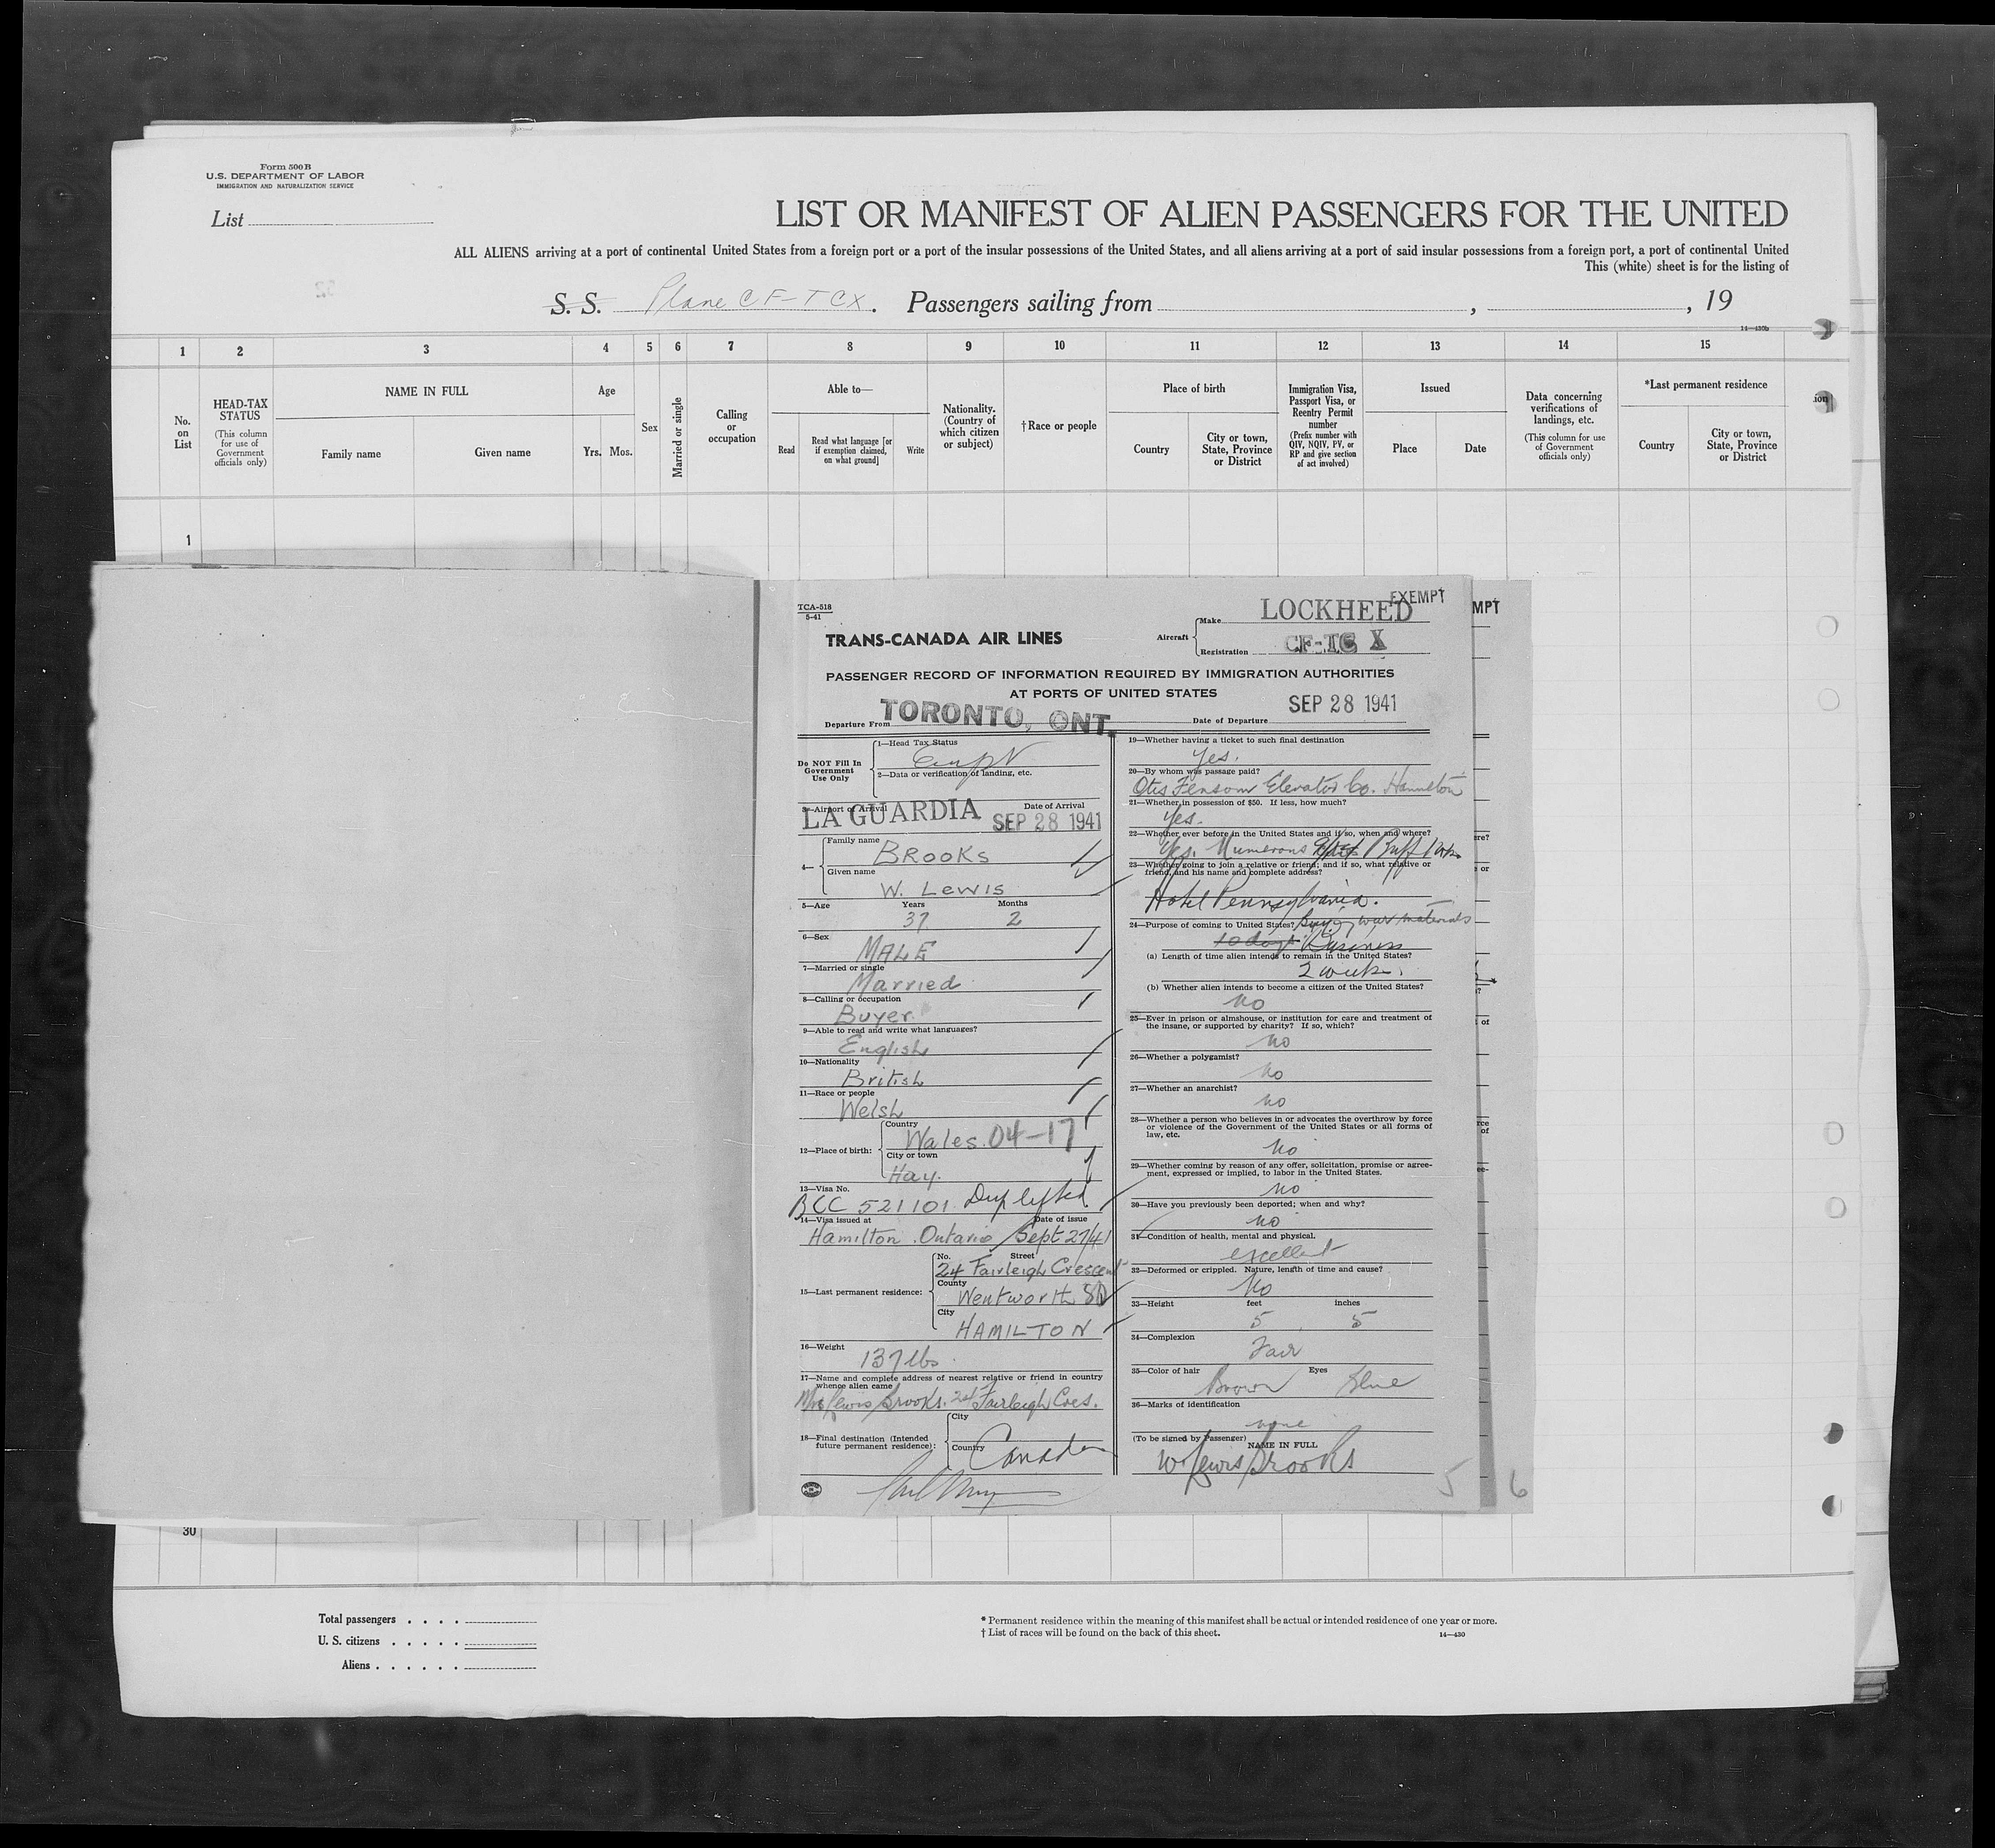 Form 500 B
U.S. DEPARTMENT OF LABOR
IMMIGRATION AND NATURALIZATION SERVICE
List
LIST OR MANIFEST OF ALIEN PASSENGERS FOR THE UNITED
ALL ALIENS arriving at a port of continental United States from a foreign port or a port of the insular possessions of the United States, and all aliens arriving at a port of said insular possessions from a foreign port, a port of continental United
This (white) sheet is for the listing of
S. S. Plane CF-TCX. Passengers sailing from , , 19
14—430b
1 2 3 4 5 6 7 8 9 10 11 12 13 14 15
No. on List
HEAD-TAX STATUS (This column for use of Government officials only)
NAME IN FULL
Family name Given name
Age
Yrs. Mos.
Sex
Married or single
Calling or occupation
Able to—
Read Read what language [or if exemption claimed, on what ground] Write
Nationality. (Country of which citizen or subject)
†Race or people
Place of birth
Country City or town, State, Province or District
Immigration Visa, Passport Visa, or Reentry Permit number (Prefix number with QIV, NQIV, PV, or RP and give section of act involved)
Issued
Place Date
Data concerning verifications of landings, etc. (This column for use of Government officials only)
*Last permanent residence
Country City or town, State, Province or District
1
TCA-518
5-41
TRANS-CANADA AIR LINES
Aircraft
Make LOCKHEED
EXEMPT
MPT
Registration CF-TC X
PASSENGER RECORD OF INFORMATION REQUIRED BY IMMIGRATION AUTHORITIES
AT PORTS OF UNITED STATES
Departure From TORONTO, ONT. Date of Departure SEP 28 1941
Do NOT Fill In Government Use Only
1—Head Tax Status
2—Data or verification of landing, etc.
3—Airport of Arrival Date of Arrival
LA GUARDIA SEP 28 1941
4—
Family name
BROOKS
Given name
W. LEWIS
5—Age Years Months
37 2
6—Sex
MALE
7—Married or single
Married
8—Calling or occupation
Buyer
9—Able to read and write what languages?
English
10—Nationality
British
11—Race or people
Welsh
12—Place of birth:
Country
Wales 04-17
City or town
Hay.
13—Visa No.
BCC 521101. Dup lifted
14—Visa issued at Date of issue
Hamilton. Ontario Sept 27/41
15—Last permanent residence:
No. Street
24 Fairleigh Crescent
County
Wentworth
City
HAMILTON
16—Weight
137 lbs.
17—Name and complete address of nearest relative or friend in country whence alien came
Mrs Lewis Brooks. 24 Fairleigh Cres.
18—Final destination (Intended future permanent residence):
City
Country Canada
19—Whether having a ticket to such final destination
Yes.
20—By whom was passage paid?
Otis Fensom Elevator Co. Hamilton
21—Whether in possession of $50. If less, how much?
Yes.
22—Whether ever before in the United States and if so, when and where?
Yes. Numerous
23—Whether going to join a relative or friend; and if so, what relative or friend, and his name and complete address?
Hotel Pennsylvania.
24—Purpose of coming to United States? Buying war materials
10 days Business
(a) Length of time alien intends to remain in the United States?
2 weeks.
(b) Whether alien intends to become a citizen of the United States?
No
25—Ever in prison or almshouse, or institution for care and treatment of the insane, or supported by charity? If so, which?
No
26—Whether a polygamist?
No
27—Whether an anarchist?
No
28—Whether a person who believes in or advocates the overthrow by force or violence of the Government of the United States or all forms of law, etc.
No
29—Whether coming by reason of any offer, solicitation, promise or agreement, expressed or implied, to labor in the United States.
No
30—Have you previously been deported; when and why?
No
31—Condition of health, mental and physical.
excellent
32—Deformed or crippled. Nature, length of time and cause?
No
33—Height feet inches
5 5
34—Complexion
Fair
35—Color of hair Eyes
Brown Blue
36—Marks of identification
none
(To be signed by Passenger)
NAME IN FULL
W. Lewis Brooks
5 6
30
Total passengers
U. S. citizens
Aliens
* Permanent residence within the meaning of this manifest shall be actual or intended residence of one year or more.
† List of races will be found on the back of this sheet.
14—430